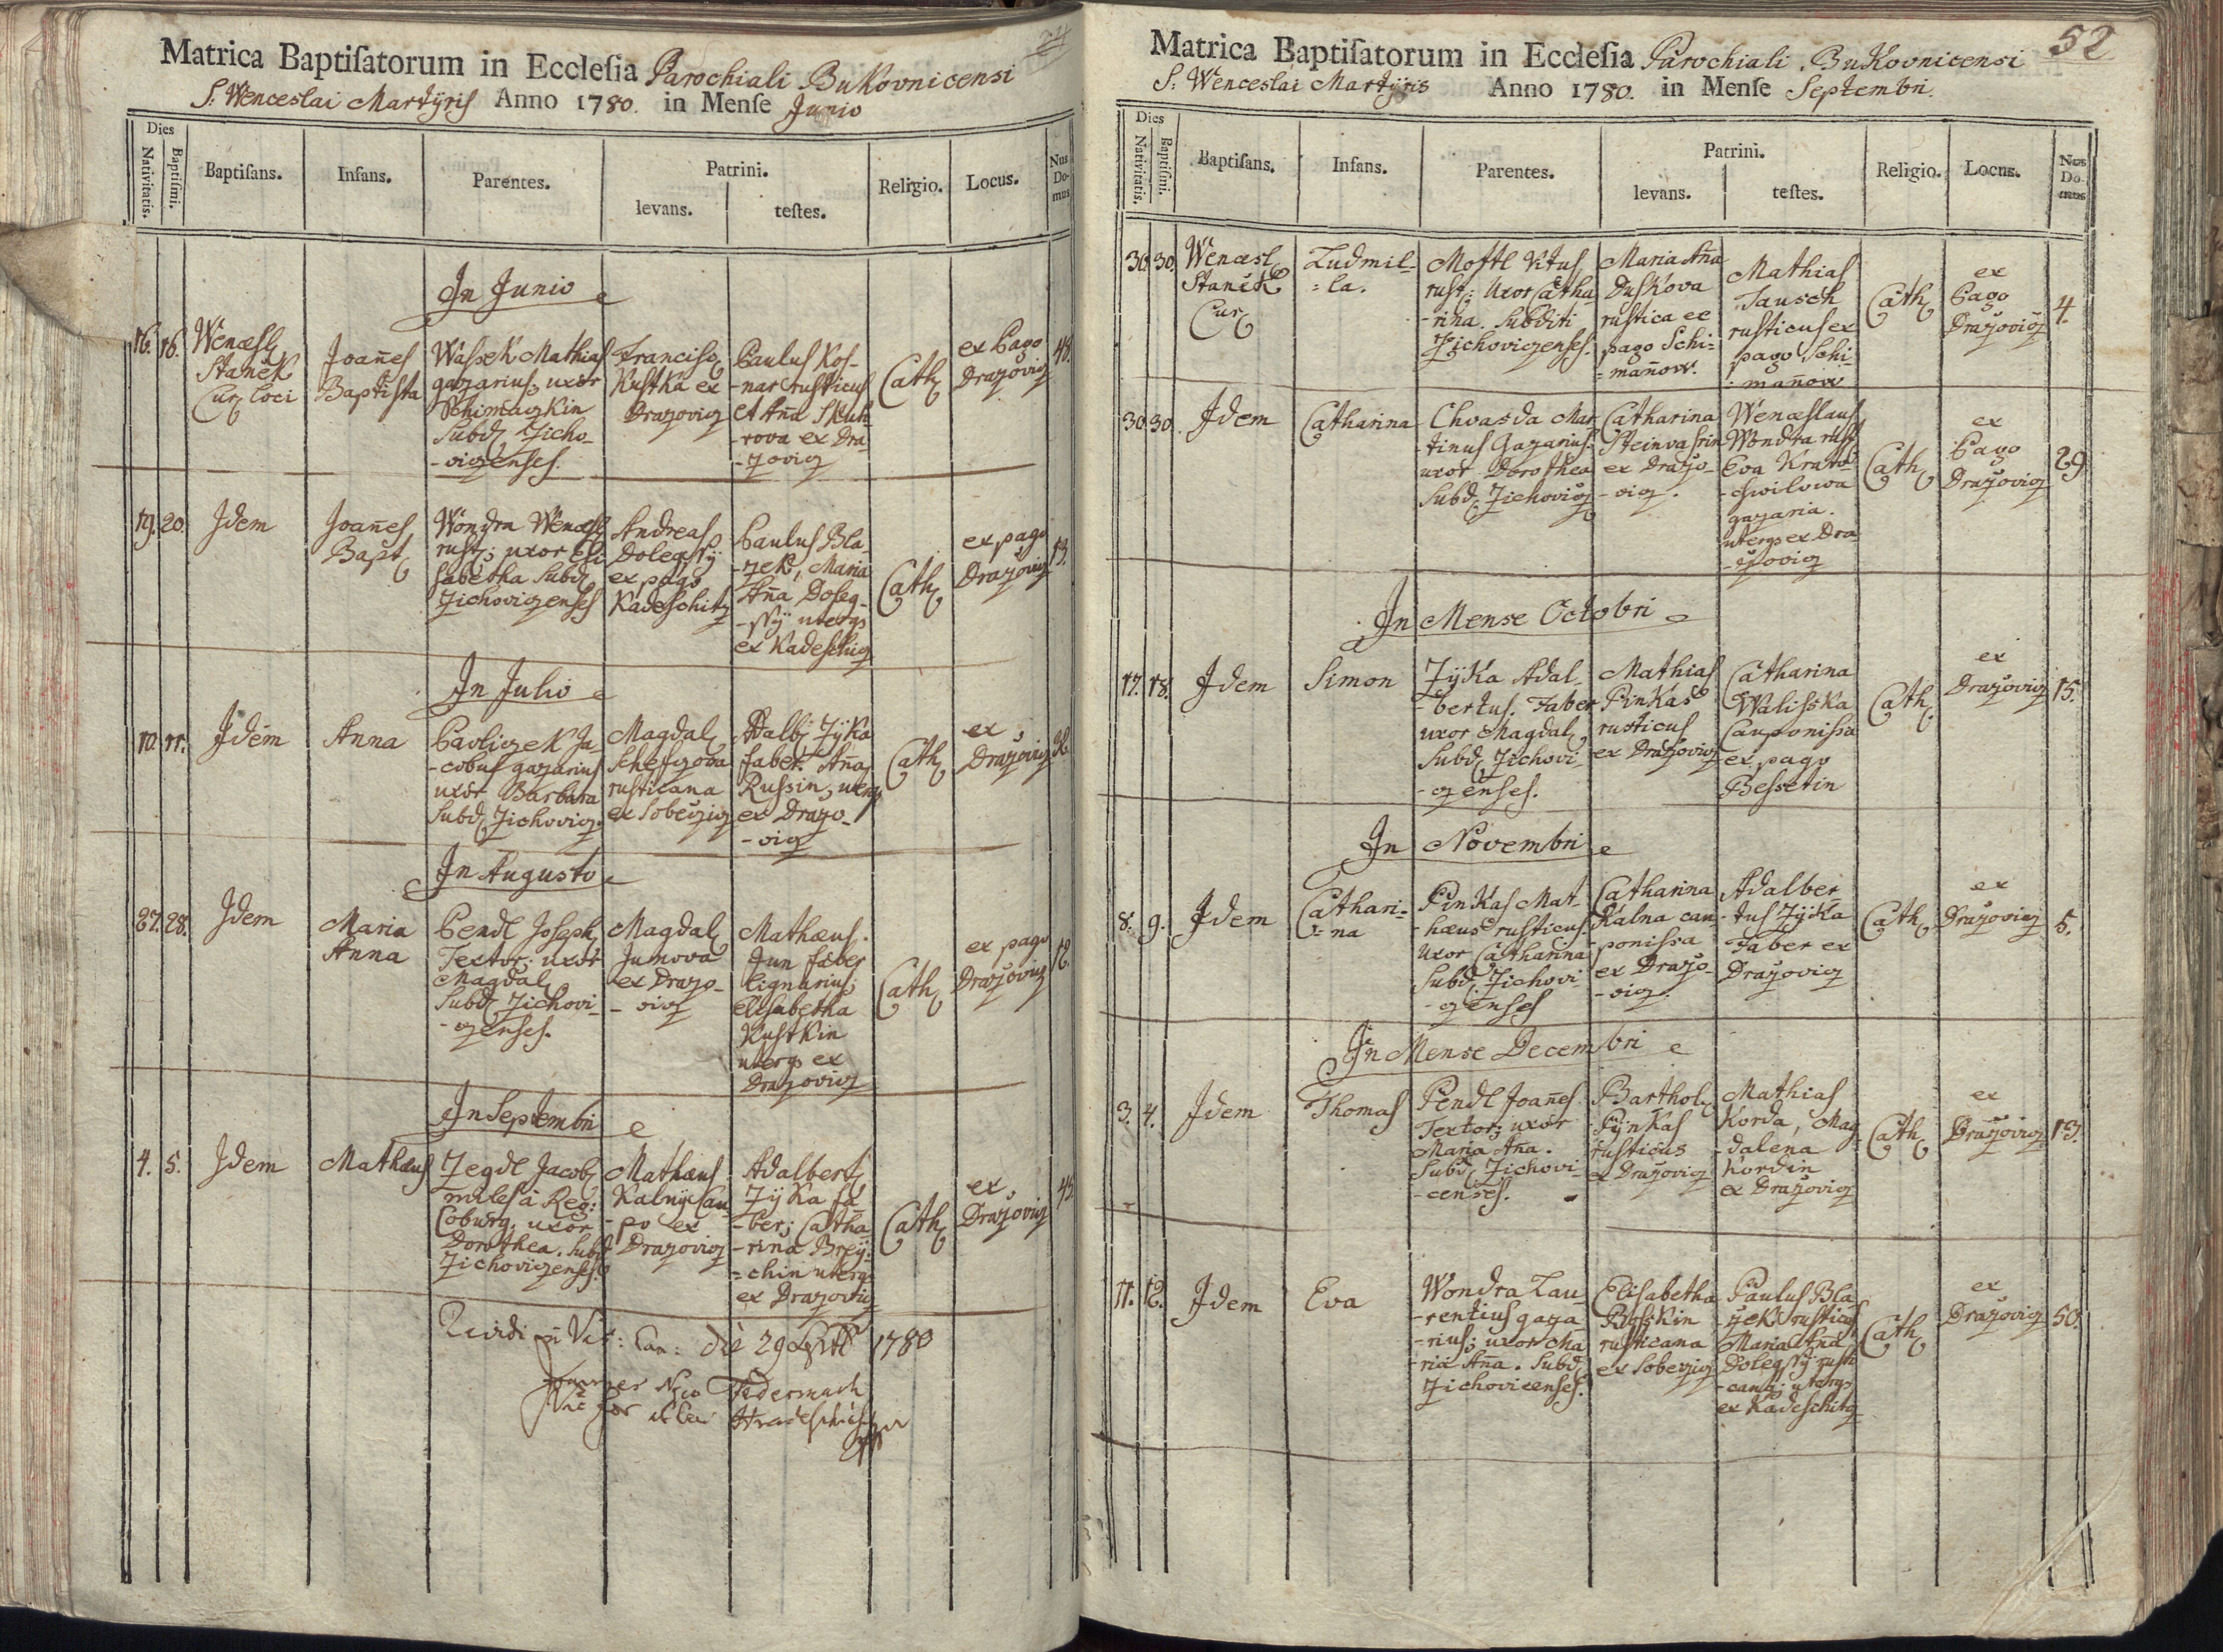 Matrica Baptisatorum in Ecclesia Parochiali Bukovnicensi
S: Wenceslai Martÿris Anno 1780. in Mense Junio
Dies
Nativitatis. Baptismi. Baptisans. Infans. Parentes. Patrini. levans. testes. Religio. Locus. Nus Domus
In Junio
16. 16.
Wencesl
Stanék
Cur loci
Joañes
Baptista
Wassek Mathias
gazarius, uxor
Subd Zicho-
-viczenses.
Francisc
Kustka ex
Drazovicz
Paulus Kos-
-nar rusticus
et Aña Skuh-
-rova ex Dra-
-zovicz
Cath
ex Pago
Drazovicz
48.
19. 20.
Idem
Joañes
Bapt
Wondra Wencesl
rust; uxor Eli
sabetha Subd
Zichoviczenses
Andreas
Dolegssÿ
ex pago
Kadeschitz
Paulus Bla-
-zek, Maria
Aña Doleg-
-ssÿ uterqs
ex Kadeschicz
Cath
ex pago
Drazovicz
13.
In Julio
10. 11.
Idem
Anna
Pavliczek Ja-
-cobus gazarius
uxor Barbara
Subd Zichovicz.
Magdal
rusticana
ex Sobeczicz
Adalb Zÿka
faber. Aña
Russin, uterqs
ex Drazo-
-vicz
Cath
ex
Drazovicz
In Augusto
27. 28.
Idem
Maria
Anna
Pendl Joseph
Textor; uxor
Magdal
Subd Zichovi-
-czenses.
Magdal
Junova
ex Drazo-
-vicz
Mathæus
Jun faber
lignarius;
Elisabetha
Kustkin
uterqs ex
Drazovicz
Cath
ex pago
Drazovicz
12.
In Septembri
4. 5.
Idem
Mathæus
Zegdl Jacob
miles à Reg:
Coburg. uxor
Dorothea. Subd
Zichoviczenses.
Mathæus
Kalnÿ Cau-
-po ex
Drazovicz
Adalbert
Zÿka fa-
-ber; Catha
-rina Breÿ-
=chin uterqs
ex Drazovicz
Cath
ex
Drazovicz
45
die 29 1780
Matrica Baptisatorum in Ecclesia Parochiali Bukovnicensi
52
S: Wenceslai Martÿris Anno 1780. in Mense Septembri.
Dies
Nativitatis. Baptismi. Baptisans. Infans. Parentes. Patrini. levans. testes. Religio. Locus. Nus Domus
30. 30.
Wencesl
Stanék
Cur
Ludmil-
=la.
Mostl Vitus
rust; uxor Catha-
-rina. Subditi
Zichoviczenses.
Maria Aña
Duskova
rustica ex
pago Schi-
=mañow.
Mathias
Tausch
rusticus ex
pago Schi-
-mañow
Cath
ex
Pago
Drazovicz
4.
30. 30.
Idem
Catharina
Chvasda Mar
-tinus Gazarius.
uxor Dorothea
Subd Zichovicz
Catharina
Steinvasrin
ex Drazo-
-vicz.
Wenceslaus
Wondra rust
Eva Krato-
-chwilowa
gazaria.
uterqs ex Dra
-zovicz
Cath
ex
Pago
Drazovicz
29
In Mense Octobri
17. 18.
Idem
Simon
Zÿka Adal-
-bertus. Faber
uxor Magdal,
Subd Zichovi-
-czenses.
Mathias
Pinkas
rusticus
ex Drazovicz
Catharina
Walisska
Cauponissa
ex pago
Bessetin
Cath
ex
Drazovicz
15.
In Novembri
8. 9.
Idem
Cathari-
=na
Pinkas Mat-
-hæus rusticus.
uxor Catharina
Subd Zichovi
-czenses
Catharina
Kalna cau-
-ponissa
ex Drazo-
-vicz.
Adalber
-tus Zÿka
Faber ex
Drazovicz
Cath
ex
Drazovicz
5.
In Mense Decembri
3. 4.
Idem
Thomas
Pendl Joañes
Textor; uxor
Maria Aña.
Subd Zichovi-
-censes.
Barthol
Pÿnkas
rusticus
ex Drazovicz
Mathias
Korda, Mag-
-dalena
Kordin
ex Drazovicz
Cath
ex
Drazovicz
13.
11. 12.
Idem
Eva
Wondra Lau-
-rentius gaza
-rius; uxor Ma
-ria Aña. Subd
Zichovicenses.
Elisabetha
rusticana
ex Sobeczicz
Paulus Bla
-zek rusticus
Maria Aña
Dolegssÿ rusti
-cana; uterqs
ex Kadeschitz
Cath
ex
Drazovicz
50.